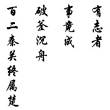 有志者
事竟成
破釜沉舟
百二秦关终属楚